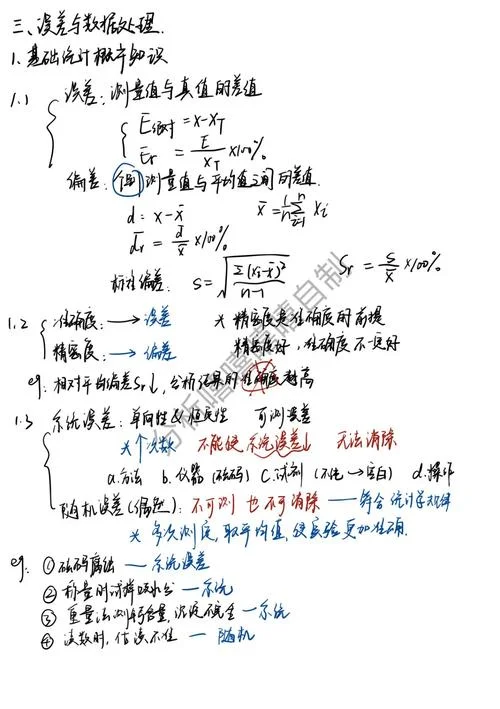 三、误差与数据处理.
1、基础统计概率知识
1.1 误差：测量值与真值的差值
E绝对 = x - x_T
Er = E/x_T ×100%
偏差：(个别)测量值与平均值之间的差值.
d = x - x̄ x̄ = 1/n Σ(i=1→n) xi
d̄r = d̄/x̄ ×100%
标准偏差： S = √(Σ(xi-x̄)²/(n-1)) Sr = S/x̄ ×100%
1.2 准确度：→ 误差 * 精密度是准确度的前提
精密度：→ 偏差 精密度好，准确度不一定好
eg：相对平均偏差Sr↓，分析结果的准确度越高
1.3 系统误差：单向性 & 恒定性 可测误差
*个次数 不能使系统误差↓ 无法消除
a.方法 b.仪器(砝码) c.试剂(不纯→空白) d.操作
随机误差(偶然)：不可测 也不可消除 — 符合统计学规律
* 多次测定，取平均值，使实验更加准确.
eg：①砝码腐蚀 — 系统误差
②称量时试样吸水分 — 系统
③重量法测钙含量，沉淀不完全 — 系统
④读数时，估读不准 — 随机
分析嘻嘻嘻自制